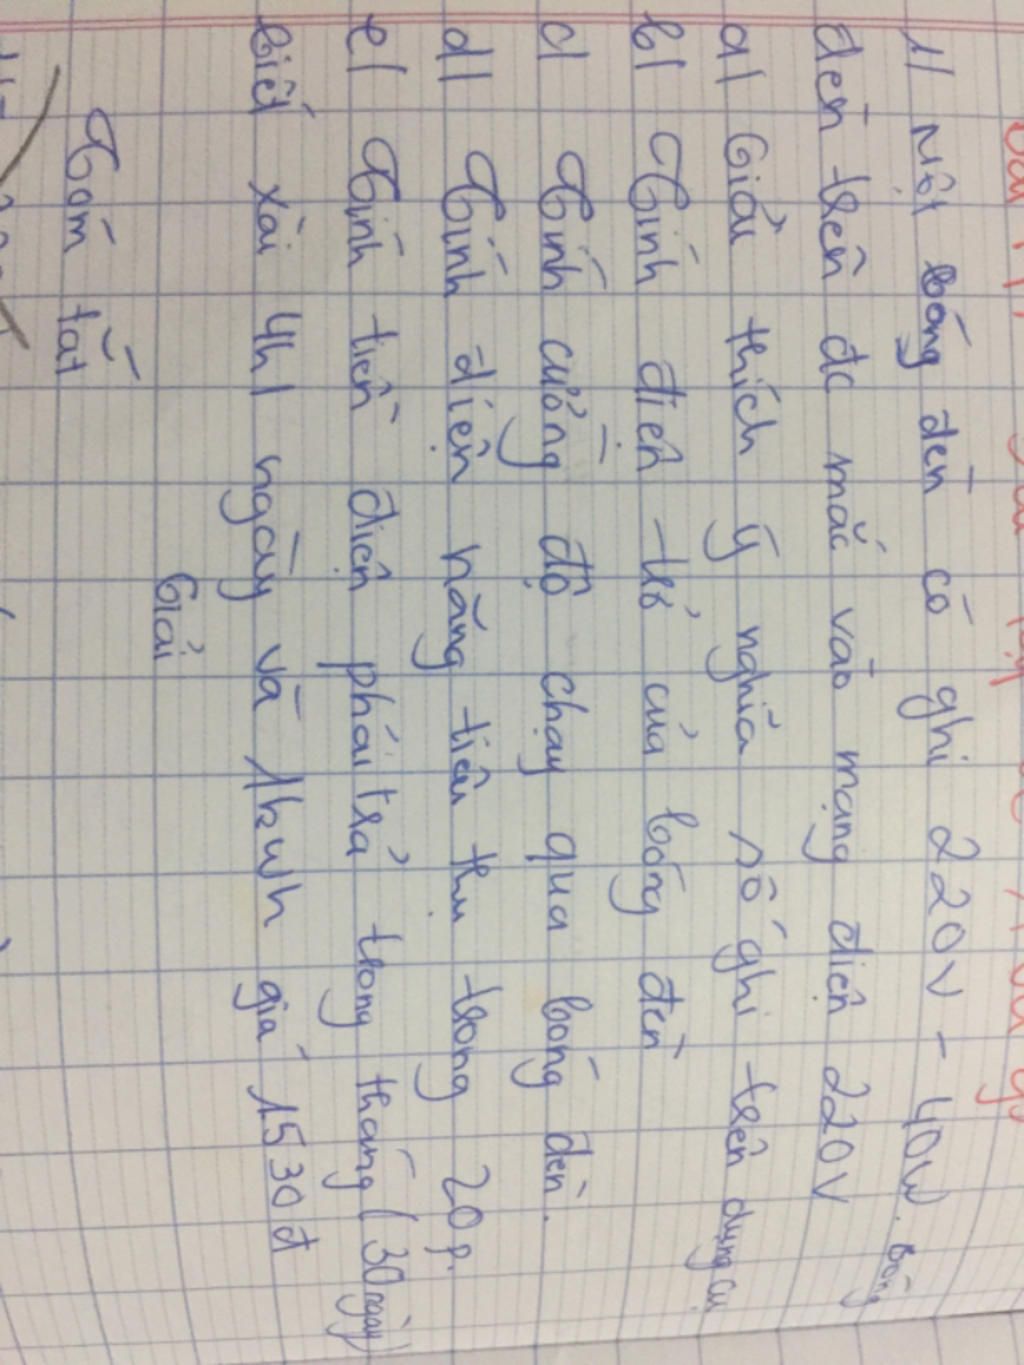 1/ Một bóng đèn có ghi 220V - 40W. Bóng
đèn trên đc mắc vào mạng điện 220V
a/ Giải thích ý nghĩa số ghi trên dụng cụ
b/ Tính điện trở của bóng đèn
c/ Tính cường độ chạy qua bóng đèn.
d/ Tính điện năng tiêu thụ trong 20p.
e/ Tính tiền điện phải trả trong tháng (30 ngày)
biết xài 4h/ ngày và 1kWh giá 1530đ
Giải
Tóm tắt